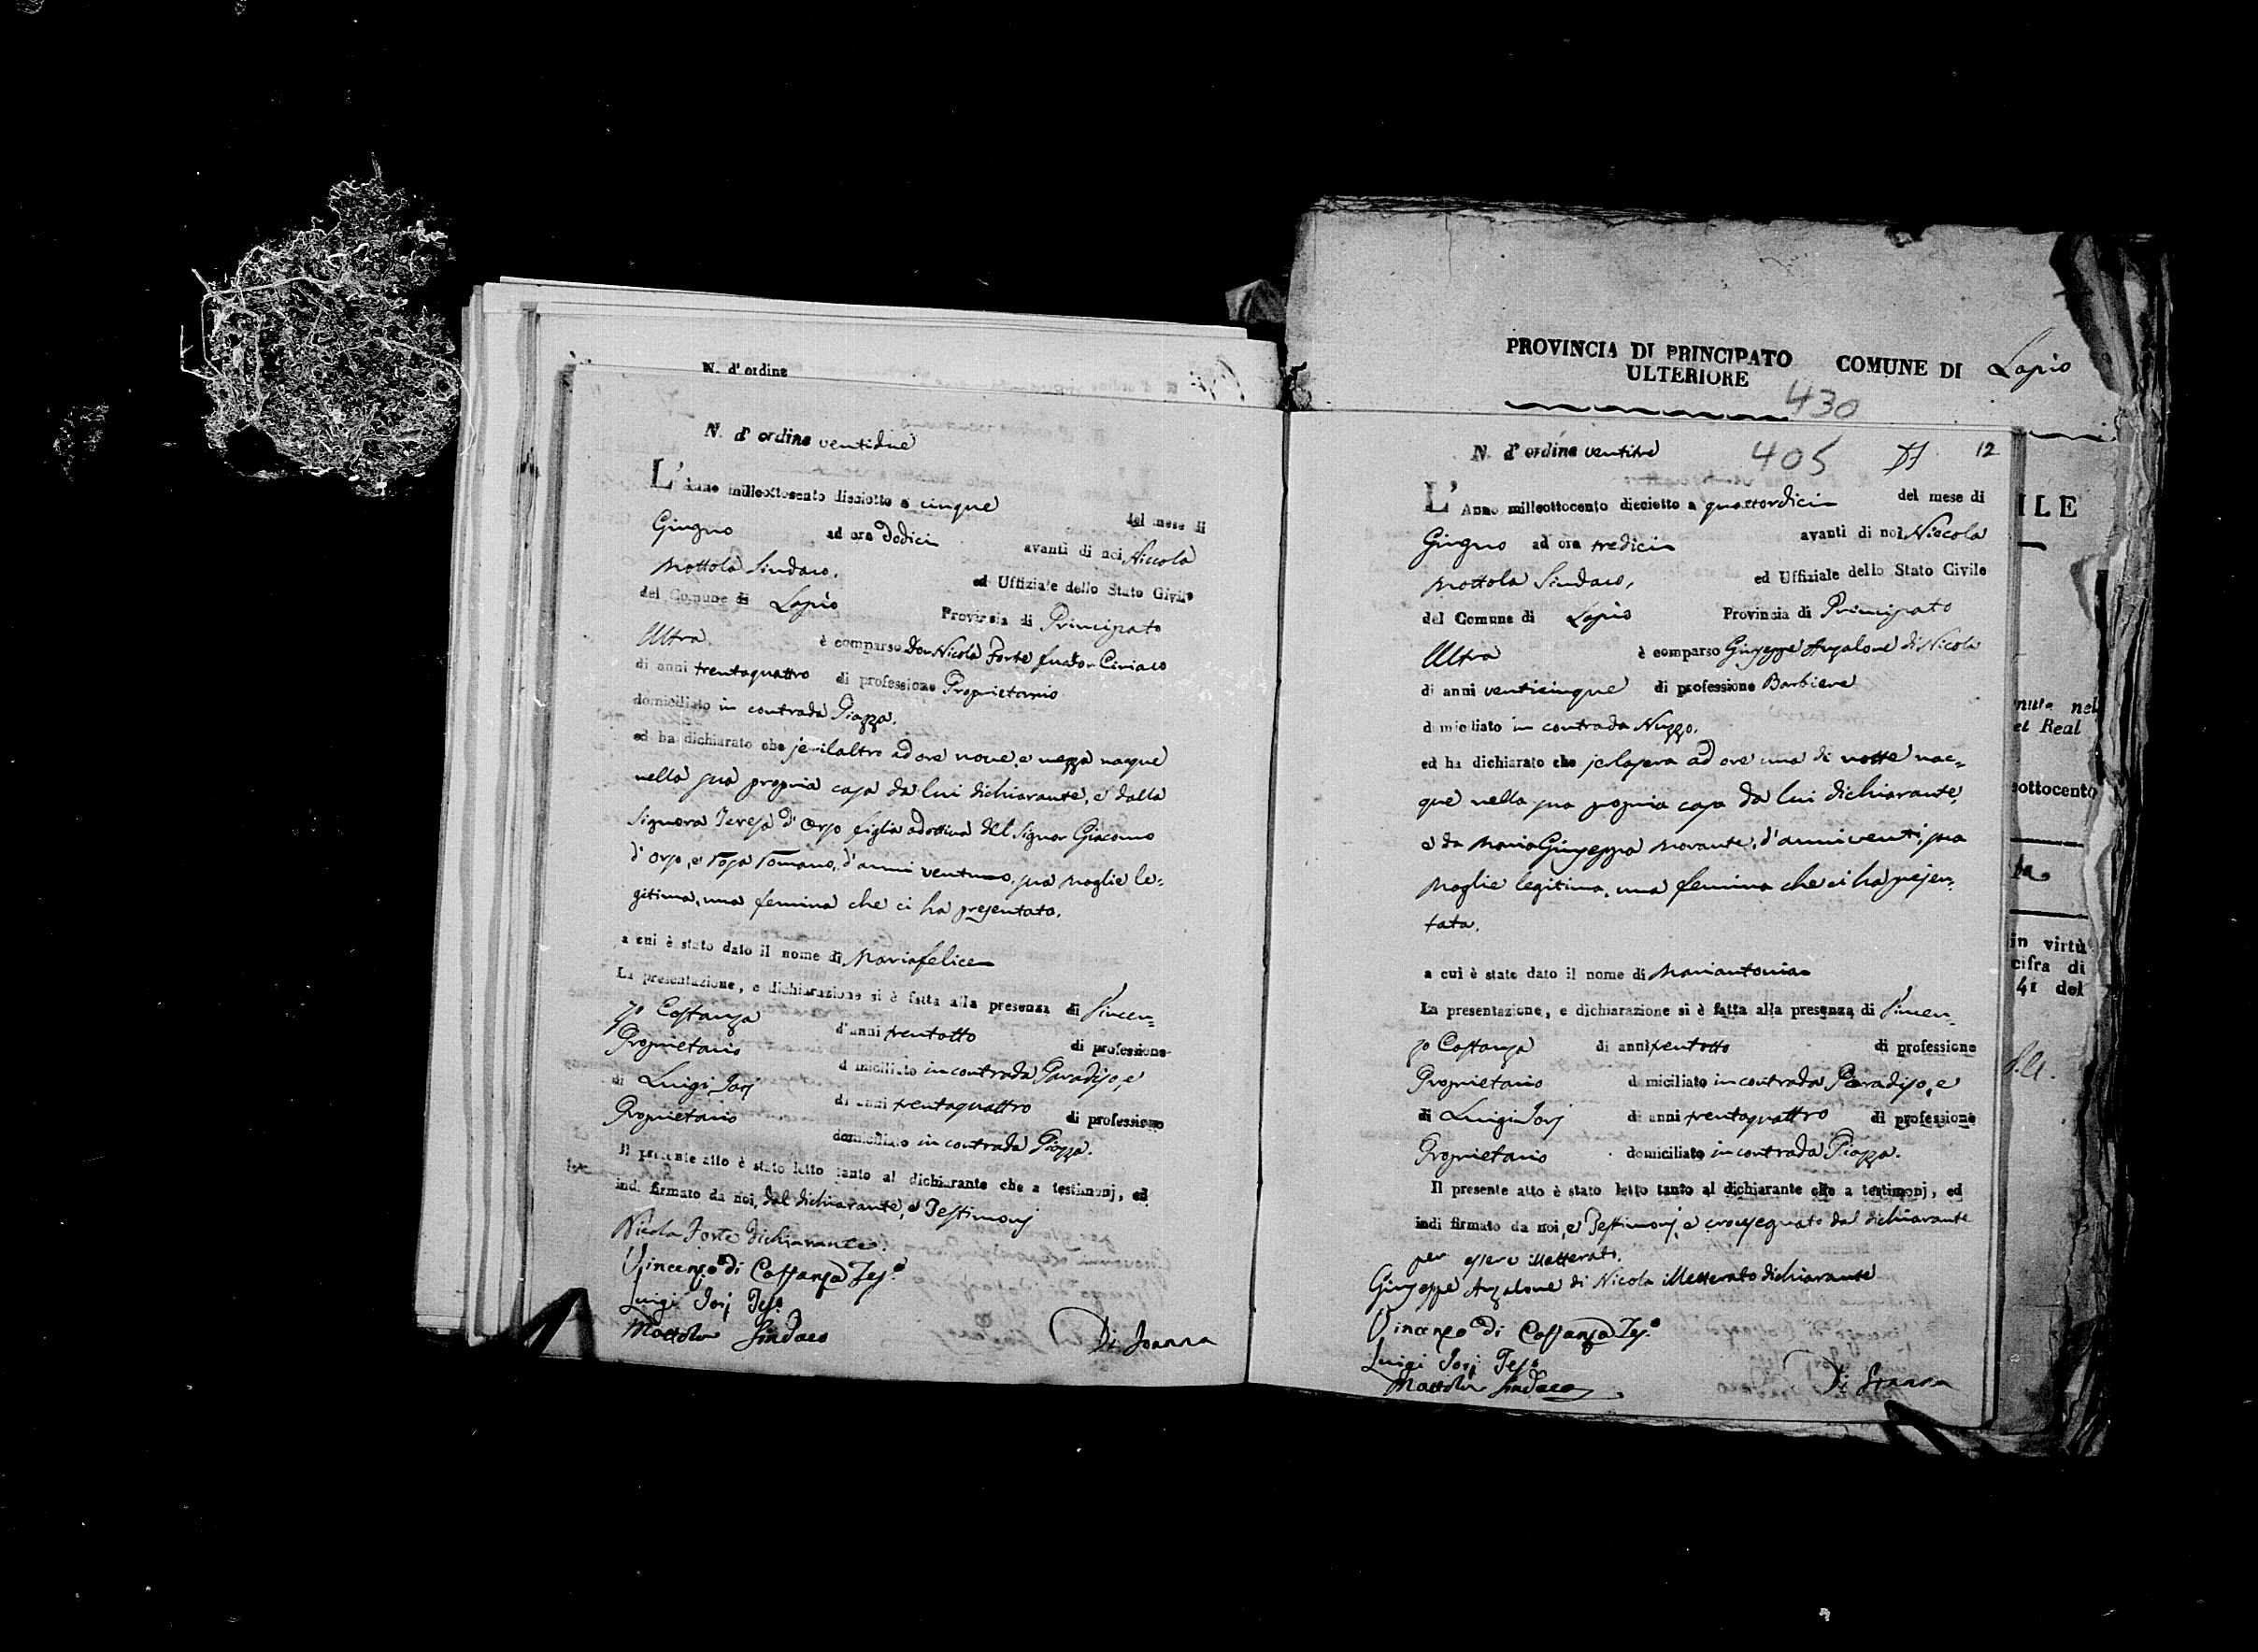 N. d' ordine
N. d' ordine ventidue
L' Anno milleottocento dieciotto a cinque del mese di
Giugno ad ora dodici avanti di noi Niccola
Mottola Sindaco, ed Uffiziale dello Stato Civile
del Comune di Lapio Provincia di Principato
Ultra è comparso Don Nicola Forte fu Don Ciriaco
di anni trentaquattro di professione Proprietario
domiciliato in contrada Piazza.
ed ha dichiarato che jerilaltro ad ore nove, e mezza nacque
nella sua propria casa da lui dichiarante, e dalla
Signora Teresa d' Orso figlia adottiva del Signor Giacomo
d' Orso, e Rosa Romano, d'anni ventuno, sua Moglie le=
gitima, una femina che ci ha presentata.
a cui è stato dato il nome di Mariafelice
La presentazione, e dichiarazione si è fatta alla presenza di Vincen=
zo Costanza d'anni trentotto di professione
Proprietario domiciliato in contrada Paradiso, e
di Luigi Iorj di anni trentaquattro di professione
Proprietario domiciliato in contrada Piazza.
Il presente atto è stato letto tanto al dichiarante che a testimonj, ed
indi firmato da noi, dal dichiarante, e Testimonj
Nicola Forte dichiarante.
Vincenzo di Costanza Tes.o
Luigi Iorj Tes.o
Mottola Sindaco Di Joanna
PROVINCIA DI PRINCIPATO COMUNE DI Lapio
ULTERIORE
430
N. d' ordine ventitre 405 12
L' Anno milleottocento dieciotto a quattordici del mese di
Giugno ad ora tredici avanti di noi Niccola
Mottola Sindaco, ed Uffiziale dello Stato Civile
del Comune di Lapio Provincia di Principato
Ultra è comparso Giuseppe Anzalone di Nicola
di anni venticinque di professione Barbiere
domiciliato in contrada Nuzzo.
ed ha dichiarato che jerlasera ad ore una di notte nac=
que nella sua propria casa da lui dichiarante,
e da MariaGiuseppa Morante, d'anni venti, sua
Moglie legitima, una femina che ci ha presen=
tata.
a cui è stato dato il nome di Mariantonia
La presentazione, e dichiarazione si è fatta alla presenza di Vincen=
zo Costanza di anni trentotto di professione
Proprietario domiciliato in contrada Paradiso, e
di Luigi Iorj di anni trentaquattro di professione
Proprietario domiciliato in contrada Piazza.
Il presente atto è stato letto tanto al dichiarante che a testimonj, ed
indi firmato da noi, e Testimonj, e crocesegnato dal dichiarante
per essere illetterato.
Giuseppe Anzalone di Nicola illetterato dichiarante
Vincenzo di Costanza Tes.o
Luigi Iorj Tes.o
Mottola Sindaco Di Joanna
ILE
nel
el Real
ottocento
in virtù
cifra di
41 del